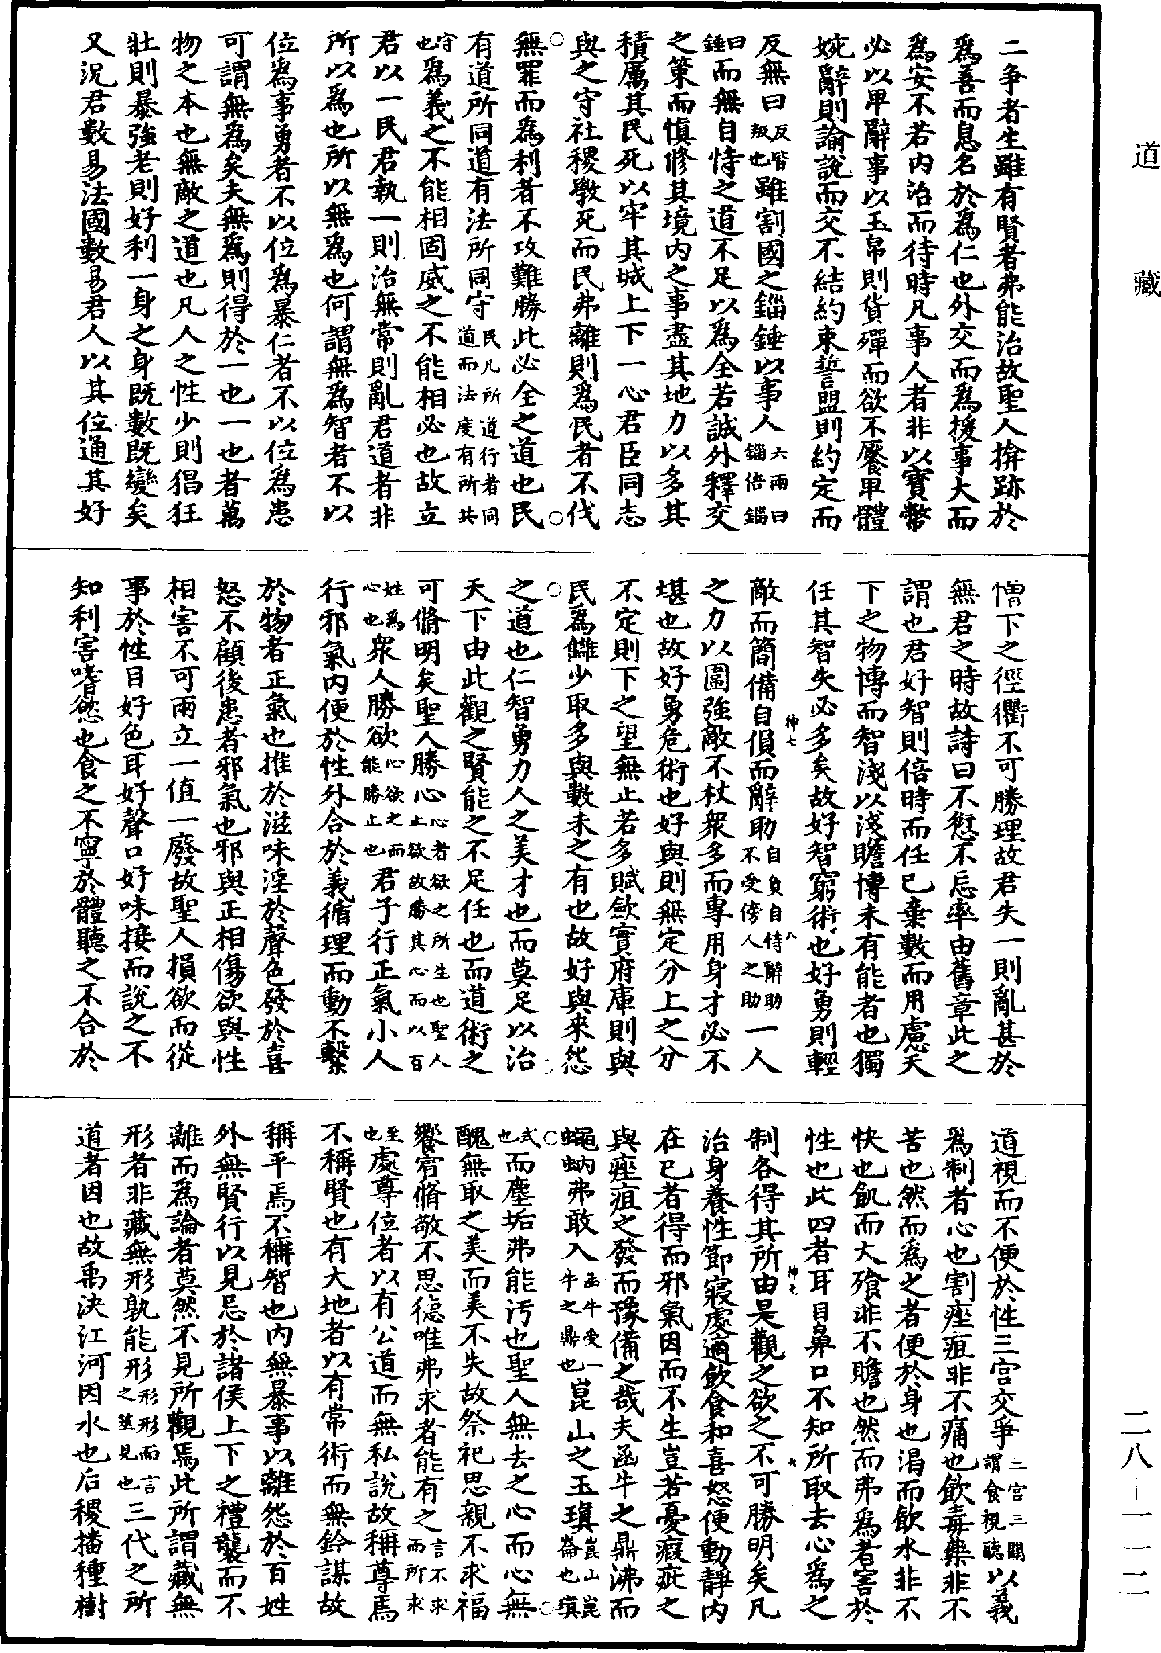 道藏
二爭者生雖有賢者弗能治故聖人揜跡於
爲善而息名於爲仁也外交而爲援事大而
爲安不若內治而待時凡事人者非以寶幣
必以卑辭事以玉帛則貨殫而欲不饜卑體
婉辭則論說而交不結約束誓盟則約定而
反無日反背叛也雖割國之錙錘以事人六兩曰錙倍錙
曰錘而無自恃之道不足以爲全若誠外釋交
之策而慎修其境內之事盡其地力以多其
積厲其民死以牢其城上下一心君臣同志
與之守社稷斆死而民弗離則爲民者不伐
無罪而爲利者不攻難勝此必全之道也民
有道所同道有法所同守民凡所道行者同道而法度有所共
守也爲義之不能相固威之不能相必也故立
君以一民君執一則治無常則亂君道者非
所以爲也所以無爲也何謂無爲智者不以
位爲事勇者不以位爲暴仁者不以位爲患
可謂無爲矣夫無爲則得於一也一也者萬
物之本也無敵之道也凡人之性少則猖狂
壯則暴強老則好利一身之身既數既變矣
又況君數易法國數易君人以其位通其好
憎下之徑衢不可勝理故君失一則亂甚於
無君之時故詩曰不愆不忘率由舊章此之
謂也君好智則倍時而任已棄數而用慮天
下之物博而智淺以淺贍博未有能者也獨
任其智失必多矣故好智窮術也好勇則輕
敵而簡備自偩而辭助自負自恃辭助不受傍人之助一人
之力以圉強敵不杖衆多而專用身才必不
堪也故好勇危術也好與則無定分上之分
不定則下之望無止若多賦歛實府庫則與
民爲讎少取多與數未之有也故好與來怨
之道也仁智勇力人之美才也而莫足以治
天下由此觀之賢能之不足任也而道術之
可脩明矣聖人勝心心者欲之所生也聖人止欲故勝其心而以百
姓爲心也衆人勝欲心欲之而能勝止也君子行正氣小人
行邪氣內便於性外合於義循理而動不繫
於物者正氣也推於滋味淫於聲色發於喜
怒不顧後患者邪氣也邪與正相傷欲與性
相害不可兩立一值一廢故聖人損欲而從
事於性目好色耳好聲口好味接而說之不
知利害嗜慾也食之不寧於體聽之不合於
道視而不便於性三宮交爭三宮三關謂食視聽以義
爲制者心也割痤疽非不痛也飲毒藥非不
苦也然而爲之者便於身也渴而飲水非不
快也飢而大飱非不贍也然而弗爲者害於
性也此四者耳目鼻口不知所取去心爲之
制各得其所由是觀之欲之不可勝明矣凡
治身養性節寢處適飲食和喜怒便動靜內
在已者得而邪氣因而不生豈若憂瘕疵之
與痤疽之發而豫備之哉夫函牛之鼎沸而
蠅蚋弗敢入函牛受一牛之鼎也崑山之玉瑱崑山崑崙也瑱
式也而塵垢弗能污也聖人無去之心而心無
醜無取之美而美不失故祭祀思親不求福
饗賓脩敬不思德唯弗求者能有之言不求而所求
至也處尊位者以有公道而無私說故稱尊焉
不稱賢也有大地者以有常術而無鈐謀故
稱平焉不稱智也內無暴事以離怨於百姓
外無賢行以見忌於諸侯上下之禮襲而不
離而爲論者莫然不見所觀焉此所謂藏無
形者非藏無形孰能形形形而言之莖見也三代之所
道者因也故禹決江河因水也后稷播種樹
二八—一一二